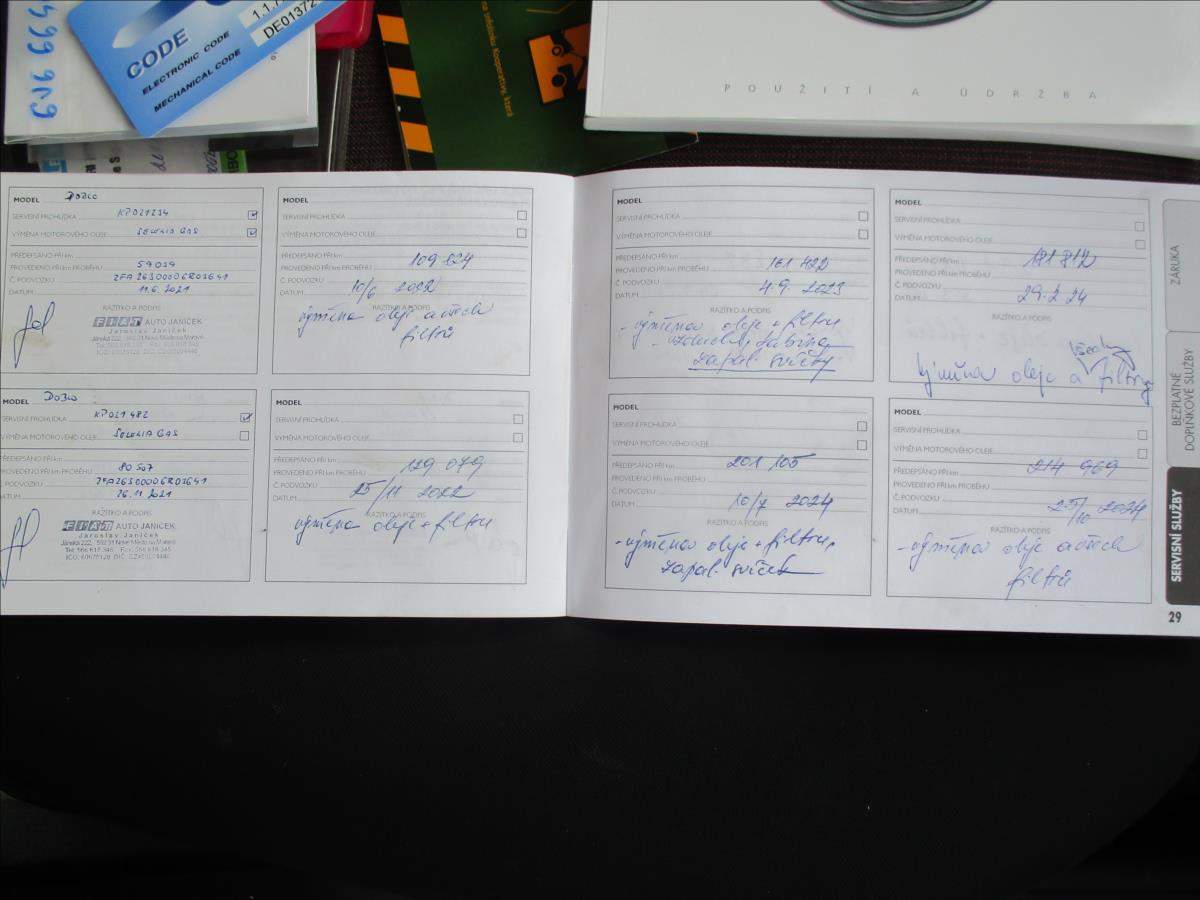 CODE
ELECTRONIC CODE
MECHANICAL CODE
POUŽITÍ A ÚDRŽBA
MODEL DOBLO
SERVISNÍ PROHLÍDKA
VÝMĚNA MOTOROVÉHO OLEJE SELENIA GAS
PŘEDEPSÁNO PŘI km
PROVEDENO PŘI km PROBĚHU 59 039
Č. PODVOZKU
DATUM 11.6. 2021
RAZÍTKO A PODPIS
FIAT AUTO JANÍČEK
Jaroslav Janíček
MODEL DOBLO
SERVISNÍ PROHLÍDKA KP021482
VÝMĚNA MOTOROVÉHO OLEJE SELENIA GAS
PŘEDEPSÁNO PŘI km
PROVEDENO PŘI km PROBĚHU 80 507
Č. PODVOZKU
DATUM 26.11 2021
RAZÍTKO A PODPIS
FIAT AUTO JANÍČEK
Jaroslav Janíček
MODEL
SERVISNÍ PROHLÍDKA
VÝMĚNA MOTOROVÉHO OLEJE
PŘEDEPSÁNO PŘI km
PROVEDENO PŘI km PROBĚHU 109 824
Č. PODVOZKU
DATUM 10/6 2022
RAZÍTKO A PODPIS
výměna oleje a všech
filtrů
MODEL
SERVISNÍ PROHLÍDKA
VÝMĚNA MOTOROVÉHO OLEJE
PŘEDEPSÁNO PŘI km
PROVEDENO PŘI km PROBĚHU 129 079
Č. PODVOZKU
DATUM 25/11 2022
RAZÍTKO A PODPIS
výměna oleje + filtru
MODEL
SERVISNÍ PROHLÍDKA
VÝMĚNA MOTOROVÉHO OLEJE
PŘEDEPSÁNO PŘI km
PROVEDENO PŘI km PROBĚHU 161 422
Č. PODVOZKU
DATUM 4.9. 2023
RAZÍTKO A PODPIS
- výměna oleje + filtru
zapal. svíčky
MODEL
SERVISNÍ PROHLÍDKA
VÝMĚNA MOTOROVÉHO OLEJE
PŘEDEPSÁNO PŘI km 201 105
PROVEDENO PŘI km PROBĚHU
Č. PODVOZKU
DATUM 10/7 2024
RAZÍTKO A PODPIS
- výměna oleje + filtru,
zapal. svíček
MODEL
SERVISNÍ PROHLÍDKA
VÝMĚNA MOTOROVÉHO OLEJE
PŘEDEPSÁNO PŘI km 181 812
PROVEDENO PŘI km PROBĚHU
Č. PODVOZKU
DATUM 29.2 24
RAZÍTKO A PODPIS
všechny
Výměna oleje a filtry
MODEL
SERVISNÍ PROHLÍDKA
VÝMĚNA MOTOROVÉHO OLEJE
PŘEDEPSÁNO PŘI km 214 969
PROVEDENO PŘI km PROBĚHU
Č. PODVOZKU
DATUM 25/10 2024
RAZÍTKO A PODPIS
- výměna oleje a všech
filtrů
ZÁRUKA
BEZPLATNÉ
DOPLŇKOVÉ SLUŽBY
SERVISNÍ SLUŽBY
29